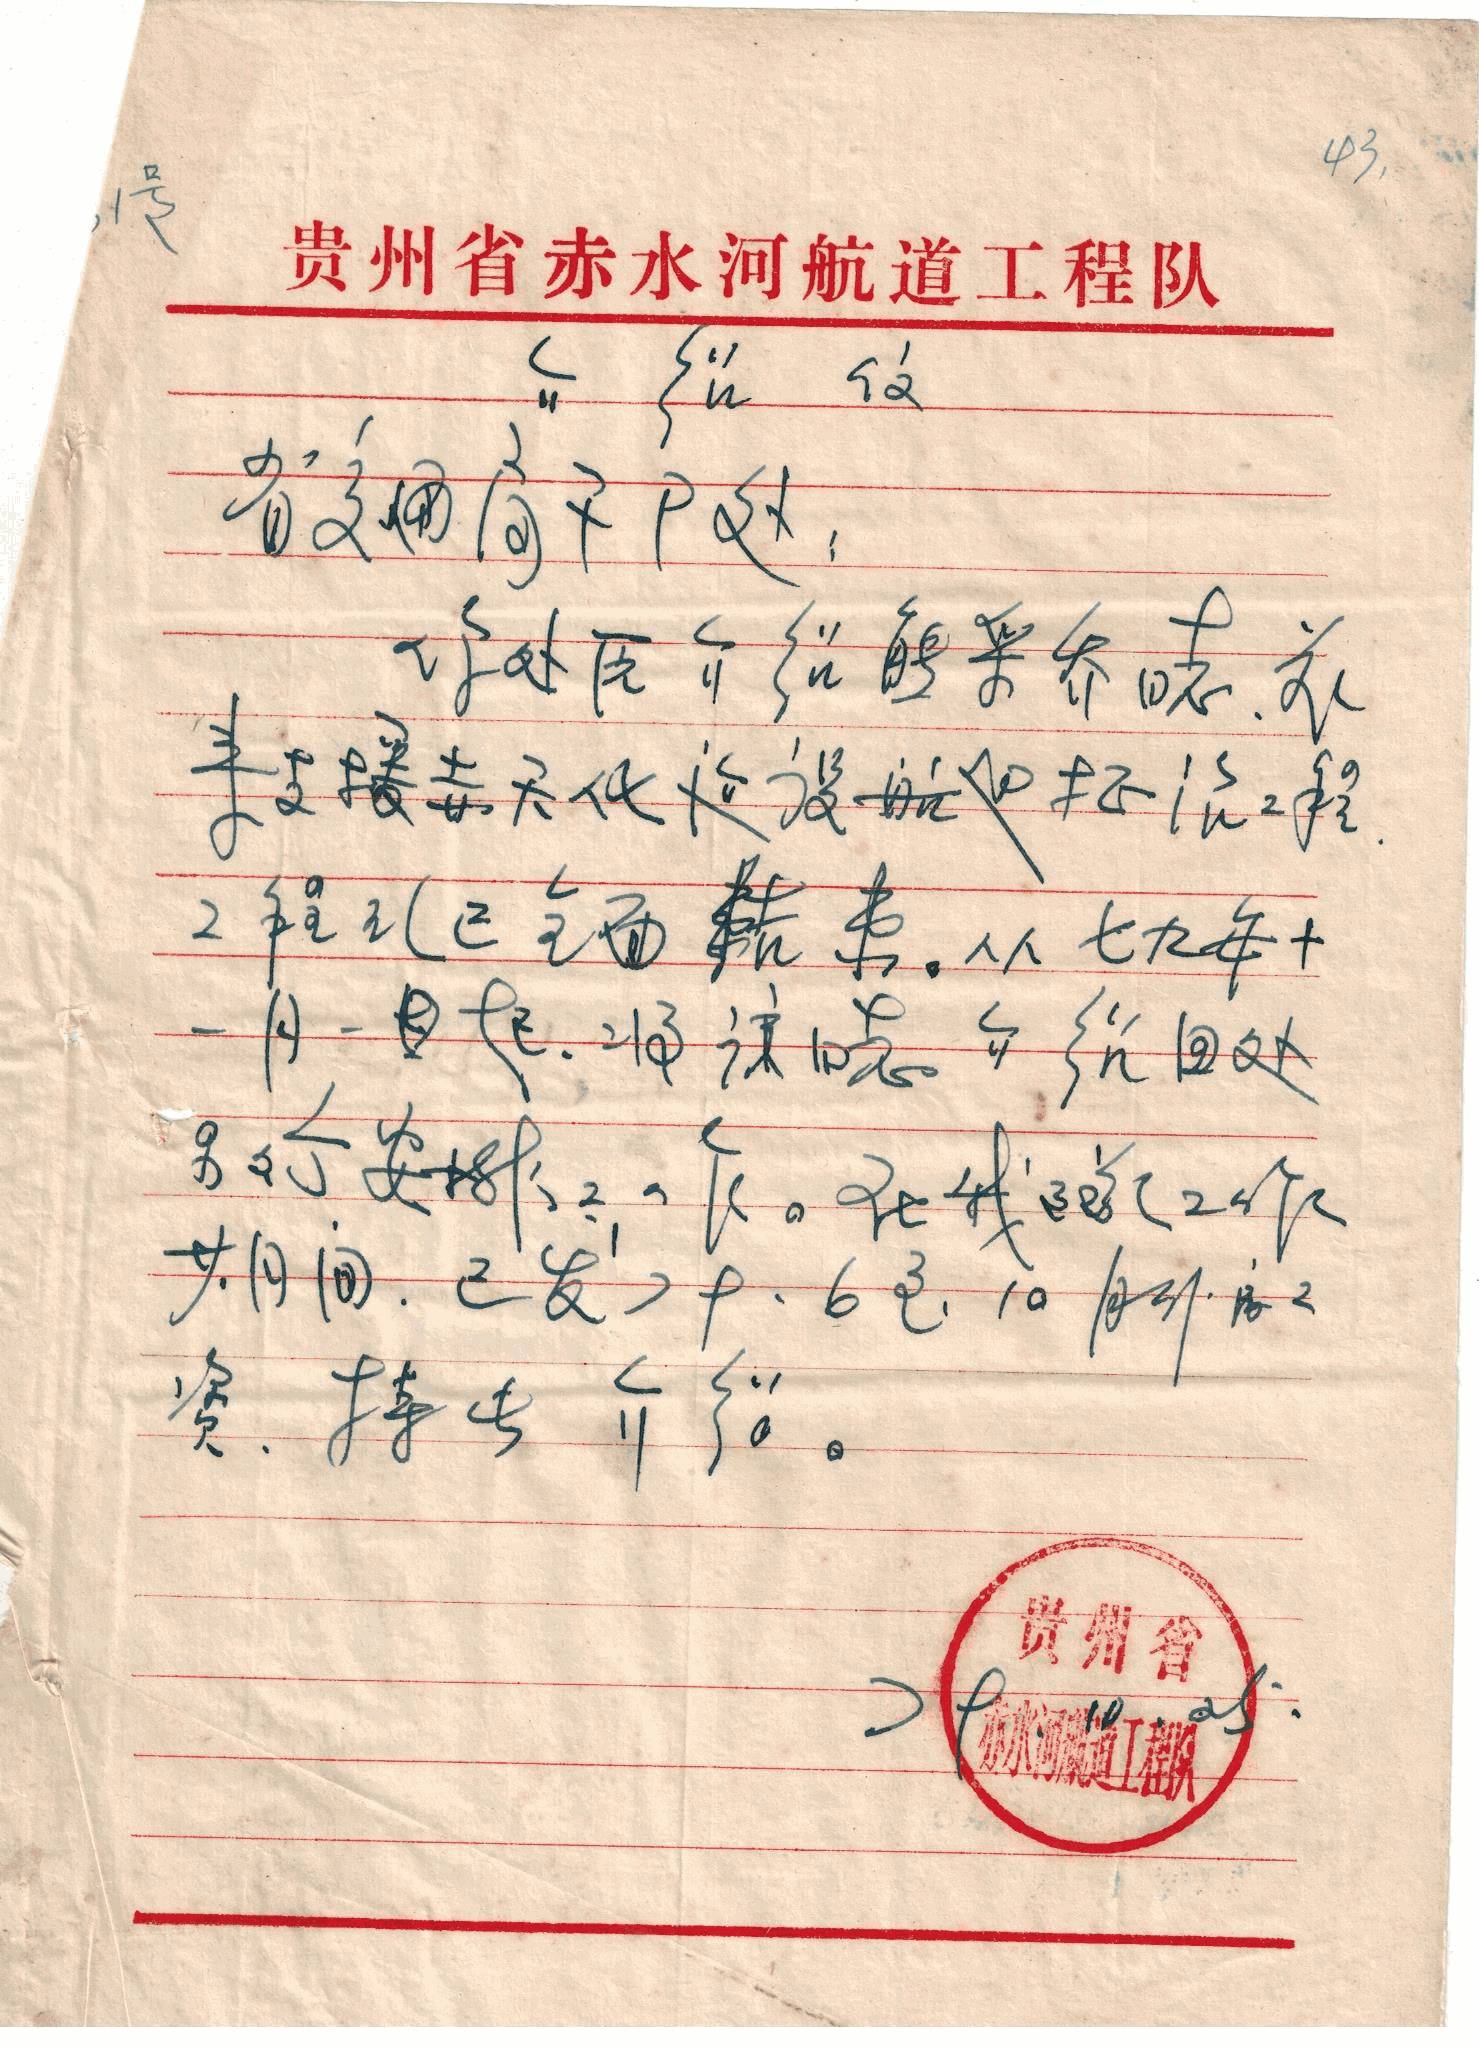 43.
1号
贵州省赤水河航道工程队
介绍信
省交通局干部处：
你处原介绍熊采乔同志，前
来支援赤天化建设航运物流工程，
工程现已全面结束。从七九年十
一月一日起，将该同志介绍回处
另行安排工作。在我这段工作
共间，已发79.6元，10月份工
资，特此介绍。
贵州省
赤水河航道工程队
79.10.25.